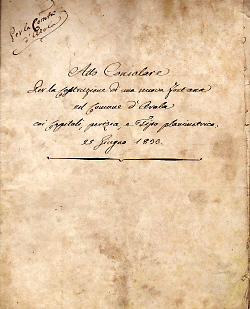 Per la Comune
d'Avola
Atto Consolare
Per la costruzione di una nuova fontana
nel Comune d'Avola
coi Capitoli, perizia, e Tipo planimetrico.
25 Giugno 1833.